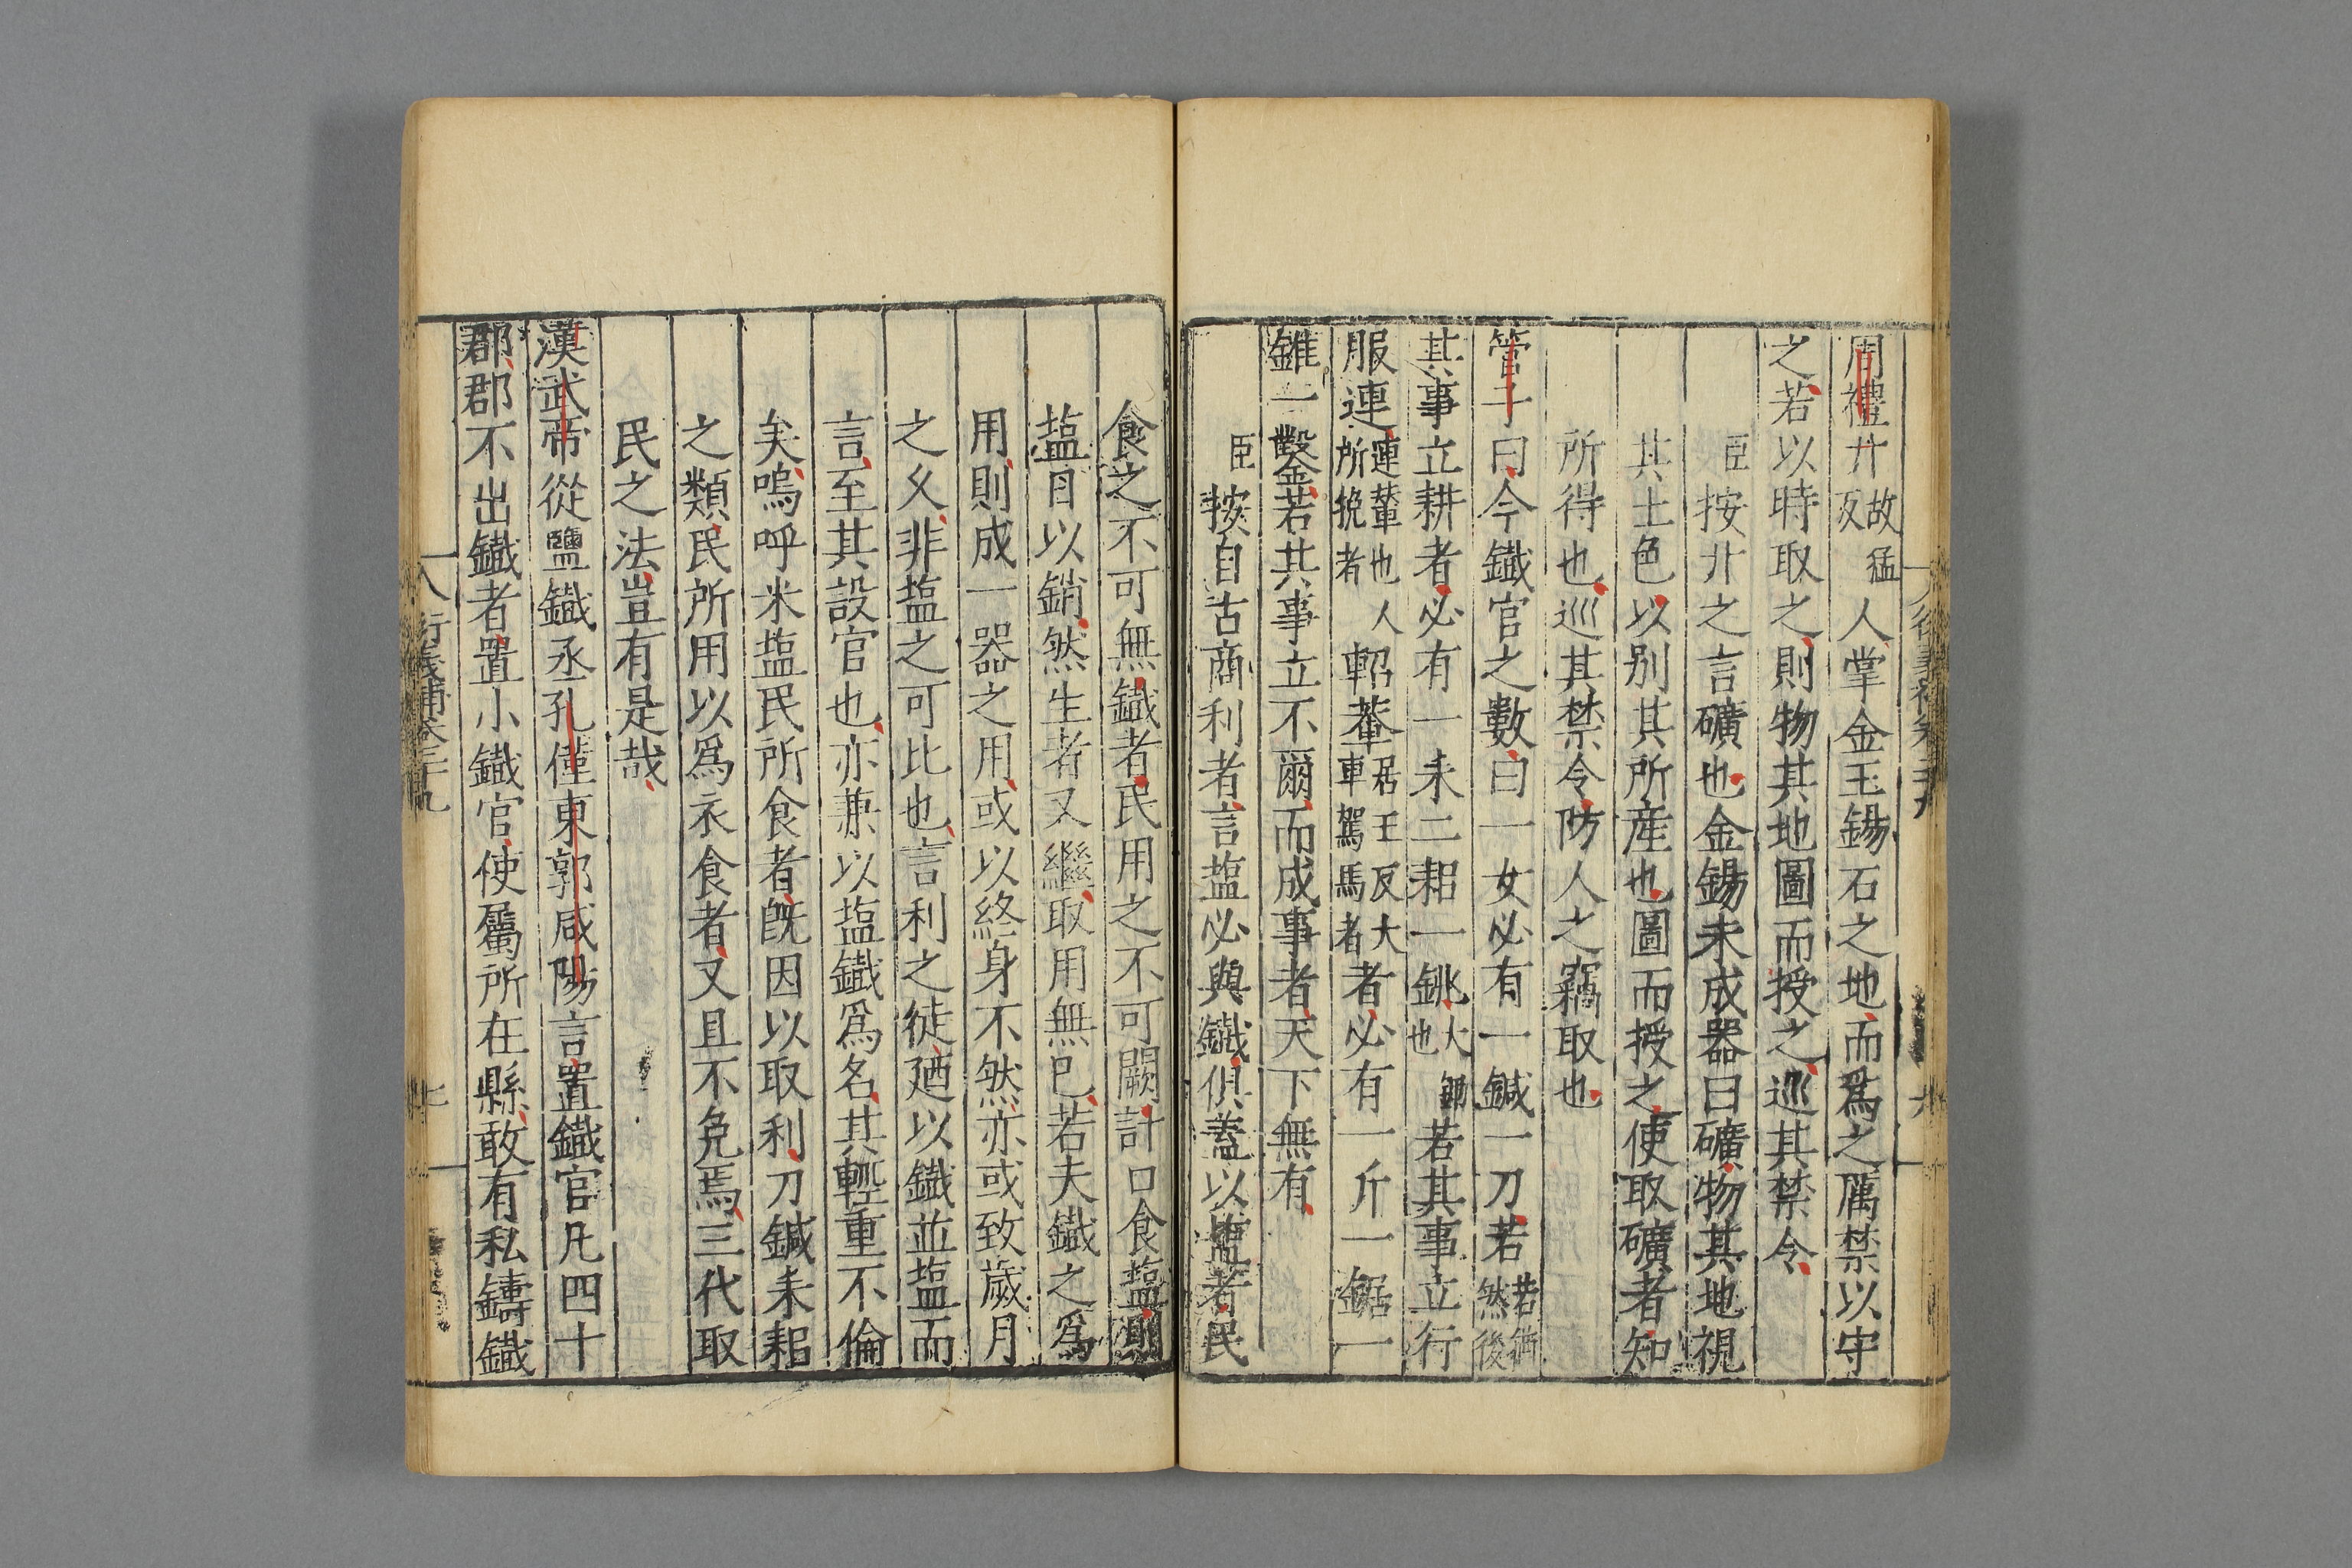 周禮卝故猛反人掌金玉錫石之地而爲之厲禁以守
之若以時取之則物其地圖而授之巡其禁令
臣按卝之言礦也金錫未成器曰礦物其地視
其土色以别其所産也圖而授之使取礦者知
所得也巡其禁令防人之竊取也
管子曰今鐵官之數曰一女必有一鍼一刀若若猶然後
其事立耕者必有一耒二耜一銚大鋤也若其事立行
服連連輦也人所輓者軺輂居玉反大車駕馬者者必有一斤一鋸一
錐一鑿若其事立不爾而成事者天下無有
臣按自古商利者言塩必與鐵俱蓋以塩者民
食之不可無鐵者民用之不可闕計口食塩則
塩日以銷然生者又繼取用無已若夫鐵之爲
用則成一器之用或以終身不然亦或致歲月
之久非塩之可比也言利之徒廼以鐵並塩而
言至其設官也亦兼以塩鐵爲名其輕重不倫
矣嗚呼米塩民所食者旣因以取利刀鍼耒耜
之類民所用以爲衣食者又且不免焉三代取
民之法豈有是哉
漢武帝從鹽鐵丞孔僅東郭咸陽言置鐵官凡四十
郡郡不出鐵者置小鐵官使屬所在縣敢有私鑄鐵
行義補卷二十九
七